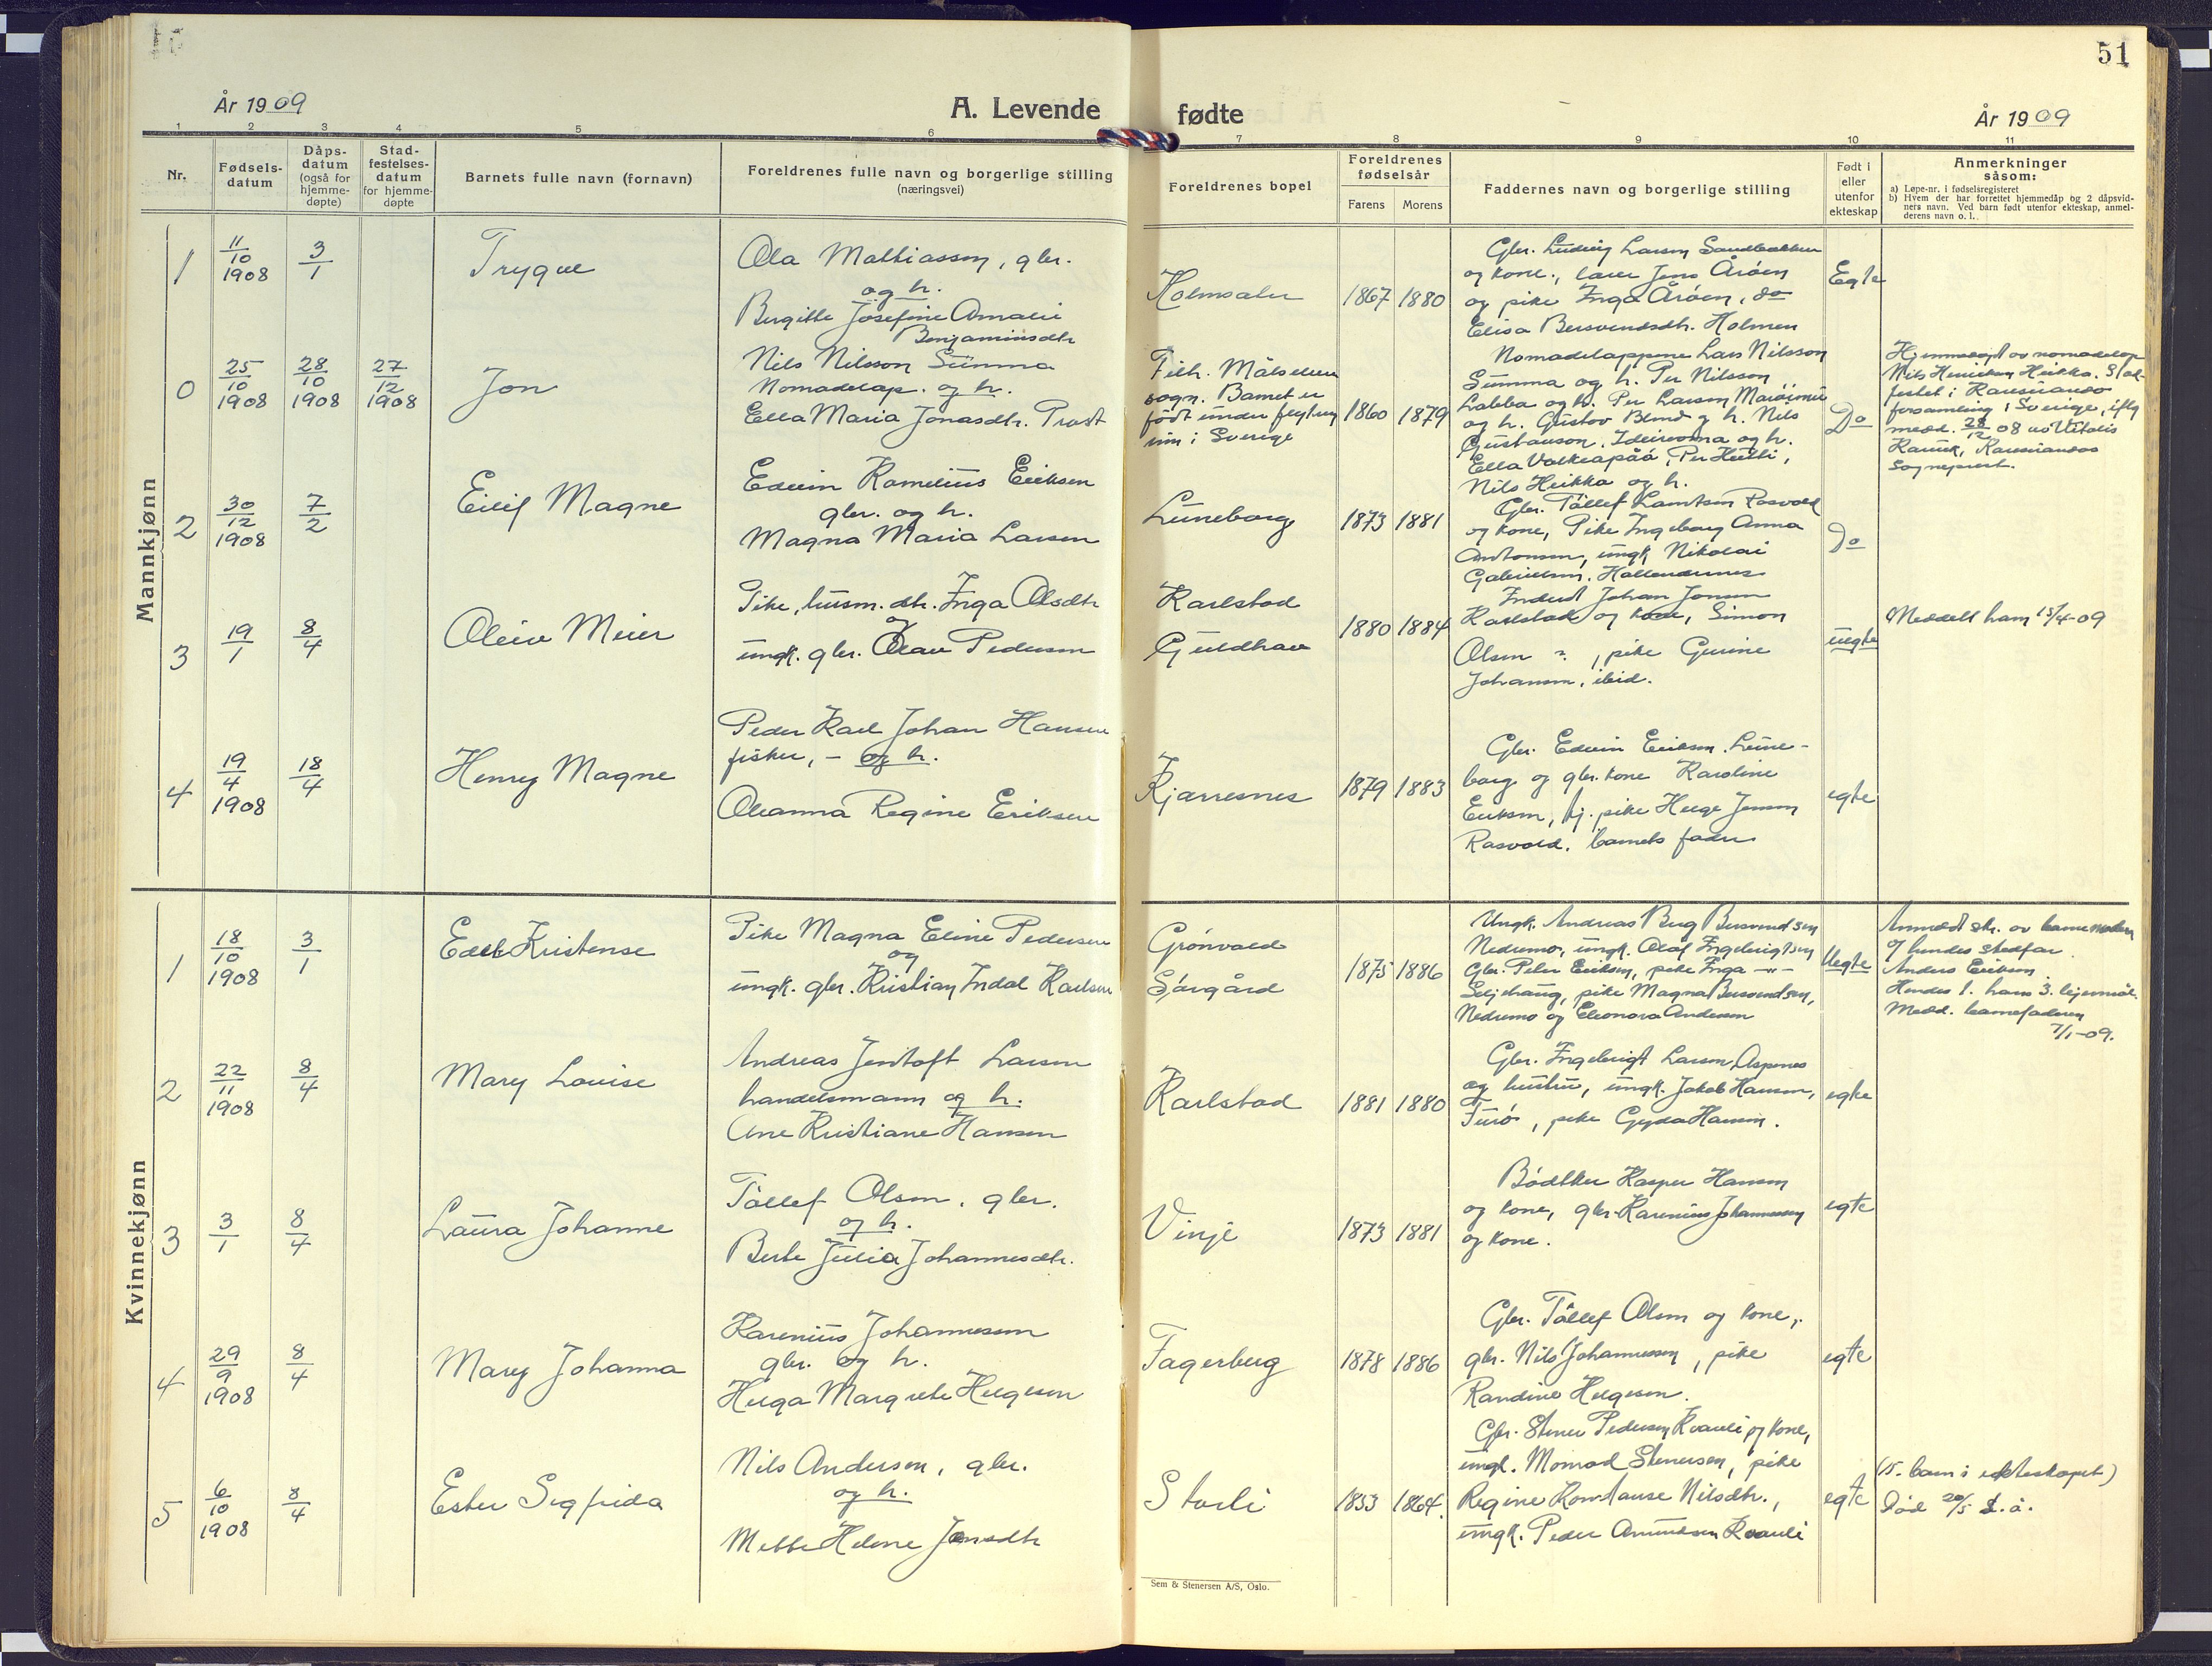 51
År 1909
A. Levende fødte
År 1909
1 2 3 4 5 6 7 8 9 10 11
Nr.
Fødsels-datum
Dåps-datum (også for hjemme-døpte)
Stad-festelses-datum for hjemme-døpte
Barnets fulle navn (fornavn)
Foreldrenes fulle navn og borgerlige stilling (næringsvei)
Foreldrenes bopel
Foreldrenes fødselsår
Farens
Morens
Faddernes navn og borgerlige stilling
Født i eller utenfor ekteskap
Anmerkninger såsom:
a) Løpe-nr. i fødselsregisteret
b) Hvem der har forrettet hjemmedåp og 2 dåpsvid-
ners navn. Ved barn født utenfor ekteskap, anmel-
derens navn o. l.
Mannkjønn
1
11/10 1908
3/1
Trygve
Ola Mathiassen, gbr.
og h.
Birgitte Josefine Amalie
Benjaminsdtr
Holmsater
1867 1880
Gbr. Ludvig Larsen Sandbakken
og kone, lærer Jens Årøen
og pike Inga Årøen, do
Elisa Bersvendsdtr. Holmen
Egte
0
25/10 1908
28/10 1908
27/12 1908
Jon
Nils Nilsson Summa
Nomadelap. og h.
Ella Maria Jonasdtr. Prost
Tilh. Målselven
sogn. Barnet er
født under flytning
inn i Sverige
1860 1879
Nomadelappene Lars Nilsson
Summa og h. Per Nilsson
Labba og h. Per Larsen
og h. Gustav Blind og h. Nils
Gustavson og h.
Ella Valkeapää, Per
Nils Heikka og h.
Do
Hjemmedøpt av nomadelap
Nils Henriksen Heikka. Stad-
festet i Karesuando
forsamling i Sverige, iflg
medd. 28/12 08 av Vitalis
Karnek, Karesuandos
Sogneprest.
2
30/12 1908
7/2
Eilif Magne
Edvin Kornelius Eriksen
gbr. og h.
Magna Maria Larsen
Luneborg
1873 1881
Gbr. Tollef Rasvold
og kone, Pike Ingeborg Anna
Antonsen, ungk Nikolai
Gabrielsen.
Do
3
19/1
8/4
Oleiv Meier
Pike, husm. dtr. Inga Olsdtr
og
ungk. gbr. Olav Pedersen
Karlstad
Guldhav
1880 1884
Inderst Johan Jensen
Karlstad og kone, Simon
Olsen ?, pike Gurine
Johansen, ibid.
uegte
Meddelt ham 15/4-09
4
19/4 1908
18/4
Henry Magne
Peder Karl Johan Hansen
fisker, – og h.
Oleanna Regine Eriksen
Kjerresnes
1879 1883
Gbr. Edvin Eriksen. Lune-
borg og gbr. kone Karoline
Eriksen, tj. pike Helge Jensen
Rasvold. barnets fader
egte
Kvinnekjønn
1
18/10 1908
3/1
Edel Kristense
Pike Magna Eline Pedersen
og
ungk. gbr. Kristian Indal Karlsen
Grønvold
Sørgård
1875 1886
Ungk. Andreas Berg Bersvendsen
Nedremo, ungk. Olaf Ingebrigtsen
Gbr. Peter Eriksen, pike Inga –"–
Seljehaug, pike Magna Bersvendsen,
Nedremo og Eleonora Andersen
Uegte
Anmeldt skr. av barnemoderen
og hendes stedfar
Anders Eriksen.
Hendes 1. hans 3. leiermål.
Medd. barnefaderen
7/1-09.
2
22/11 1908
8/4
Mary Lovise
Andreas Jentoft Larsen
handelsmann og h.
Ane Kristiane Hansen
Karlstad
1881 1880
Gbr. Ingebrigt Larsen, Aspenes
og hustru, ungk. Jakob Hansen,
Turö, pike Gyda Hansen.
egte
3
3/1
8/4
Laura Johanne
Tollef Olsen, gbr.
og h.
Berte Julie Johannesdtr.
Vinje
1873 1881
Bødtker Kasper Hansen
og kone, gbr. Karenius Johannessen
og kone.
egte
4
29/9 1908
8/4
Mary Johanna
Karenius Johannessen
gbr. og h.
Helga Margrete Helgesen
Fagerberg
1878 1886
Gbr. Tollef Olsen og kone,
gbr. Nils Johannessen, pike
Randine Helgesen.
egte
5
6/10 1908
8/4
Ester Sigfrida
Nils Andersen, gbr.
og h.
Mette Helene Jensdtr
Storli
1853 1864.
Gbr. Stener Pedersen Kvanli og kone,
ungk. Monrad Stenersen, pike
Regine Konstanse Nilsdtr.,
ungk. Peder Amundsen Kvanli
egte
(15. barn i ekteskapet)
Død 20/5 s. å.
Sem & Stenersen A/S, Oslo.